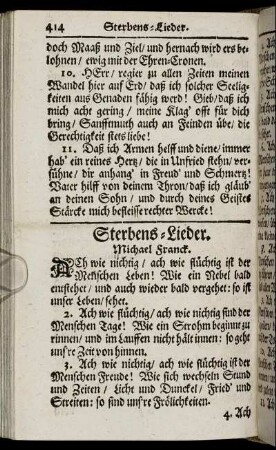 414 Sterbens-Lieder.
doch Maaß und Ziel/ und hernach wird ers be-
lohnen/ ewig mit der Ehren-Cronen.
10. HErr/ regier zu allen Zeiten meinen
Wandel hier auf Erd/ daß ich solcher Seelig-
keiten aus Genaden fähig werd! Gieb/ daß ich
mich acht gering/ meine Klag' offt für dich
bring/ Sanfftmuth auch an Feinden übe/ die
Gerechtigkeit stets liebe!
11. Daß ich Armen helff und diene/ immer
hab' ein reines Hertz/ die in Unfried stehn/ ver-
sühne/ dir anhang' in Freud' und Schmertz!
Vater hilff von deinem Thron/ daß ich gläub'
an deinen Sohn/ und durch deines Geistes
Stärcke mich befleisse rechter Wercke!
Sterbens-Lieder.
Michael Franck.
ACh wie nichtig/ ach wie flüchtig ist der
Menschen Leben! Wie ein Nebel bald
enstehet/ und auch wieder bald vergehet: so ist
unser Leben/ sehet.
2. Ach wie flüchtig/ ach wie nichtig sind der
Menschen Tage! Wie ein Strohm beginnt zu
rinnen/ und im Lauffen nicht hält innen: so geht
unsre Zeit von hinnen.
3. Ach wie nichtig/ ach wie flüchtig ist der
Menschen Freude! Wie sich wechseln Stund
und Zeiten/ Licht und Dunckel/ Fried' und
Streiten: so sind unsre Frölichkeiten.
4. Ach